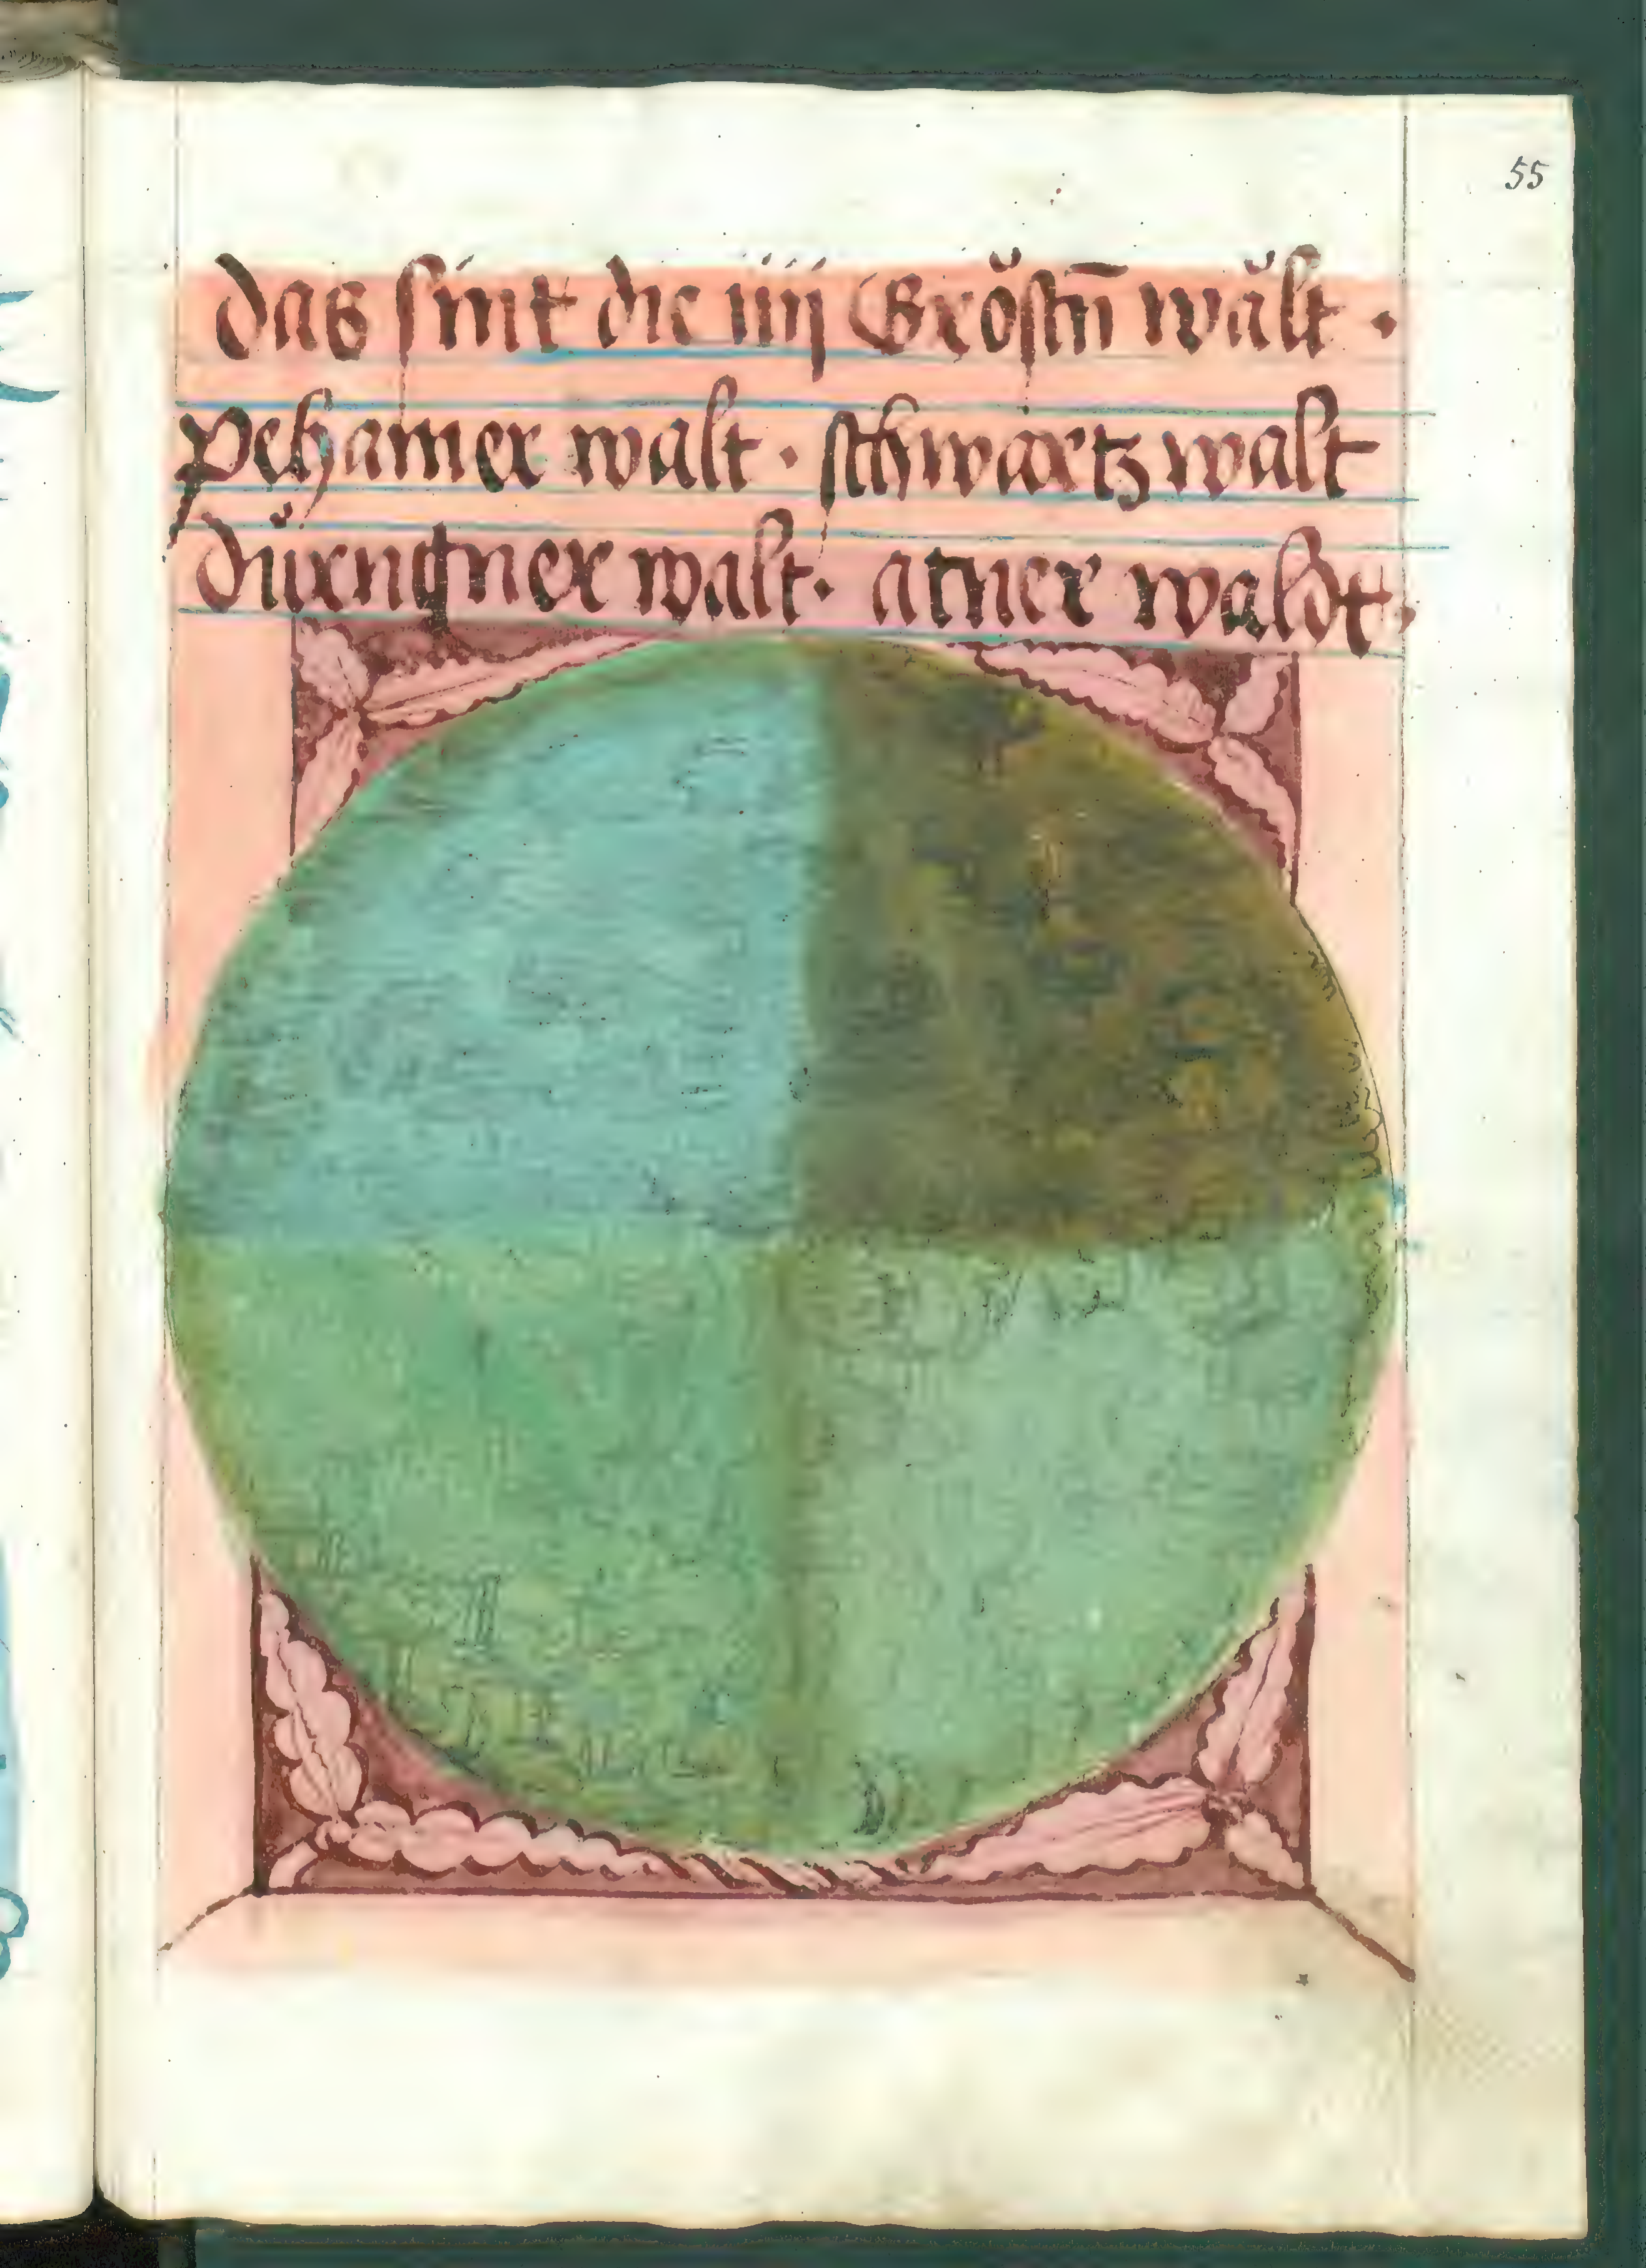 55
das sint die iiij Gröstñ wält ·
pehamer walt · schwartz walt
dürngner walt · atner waldt ·